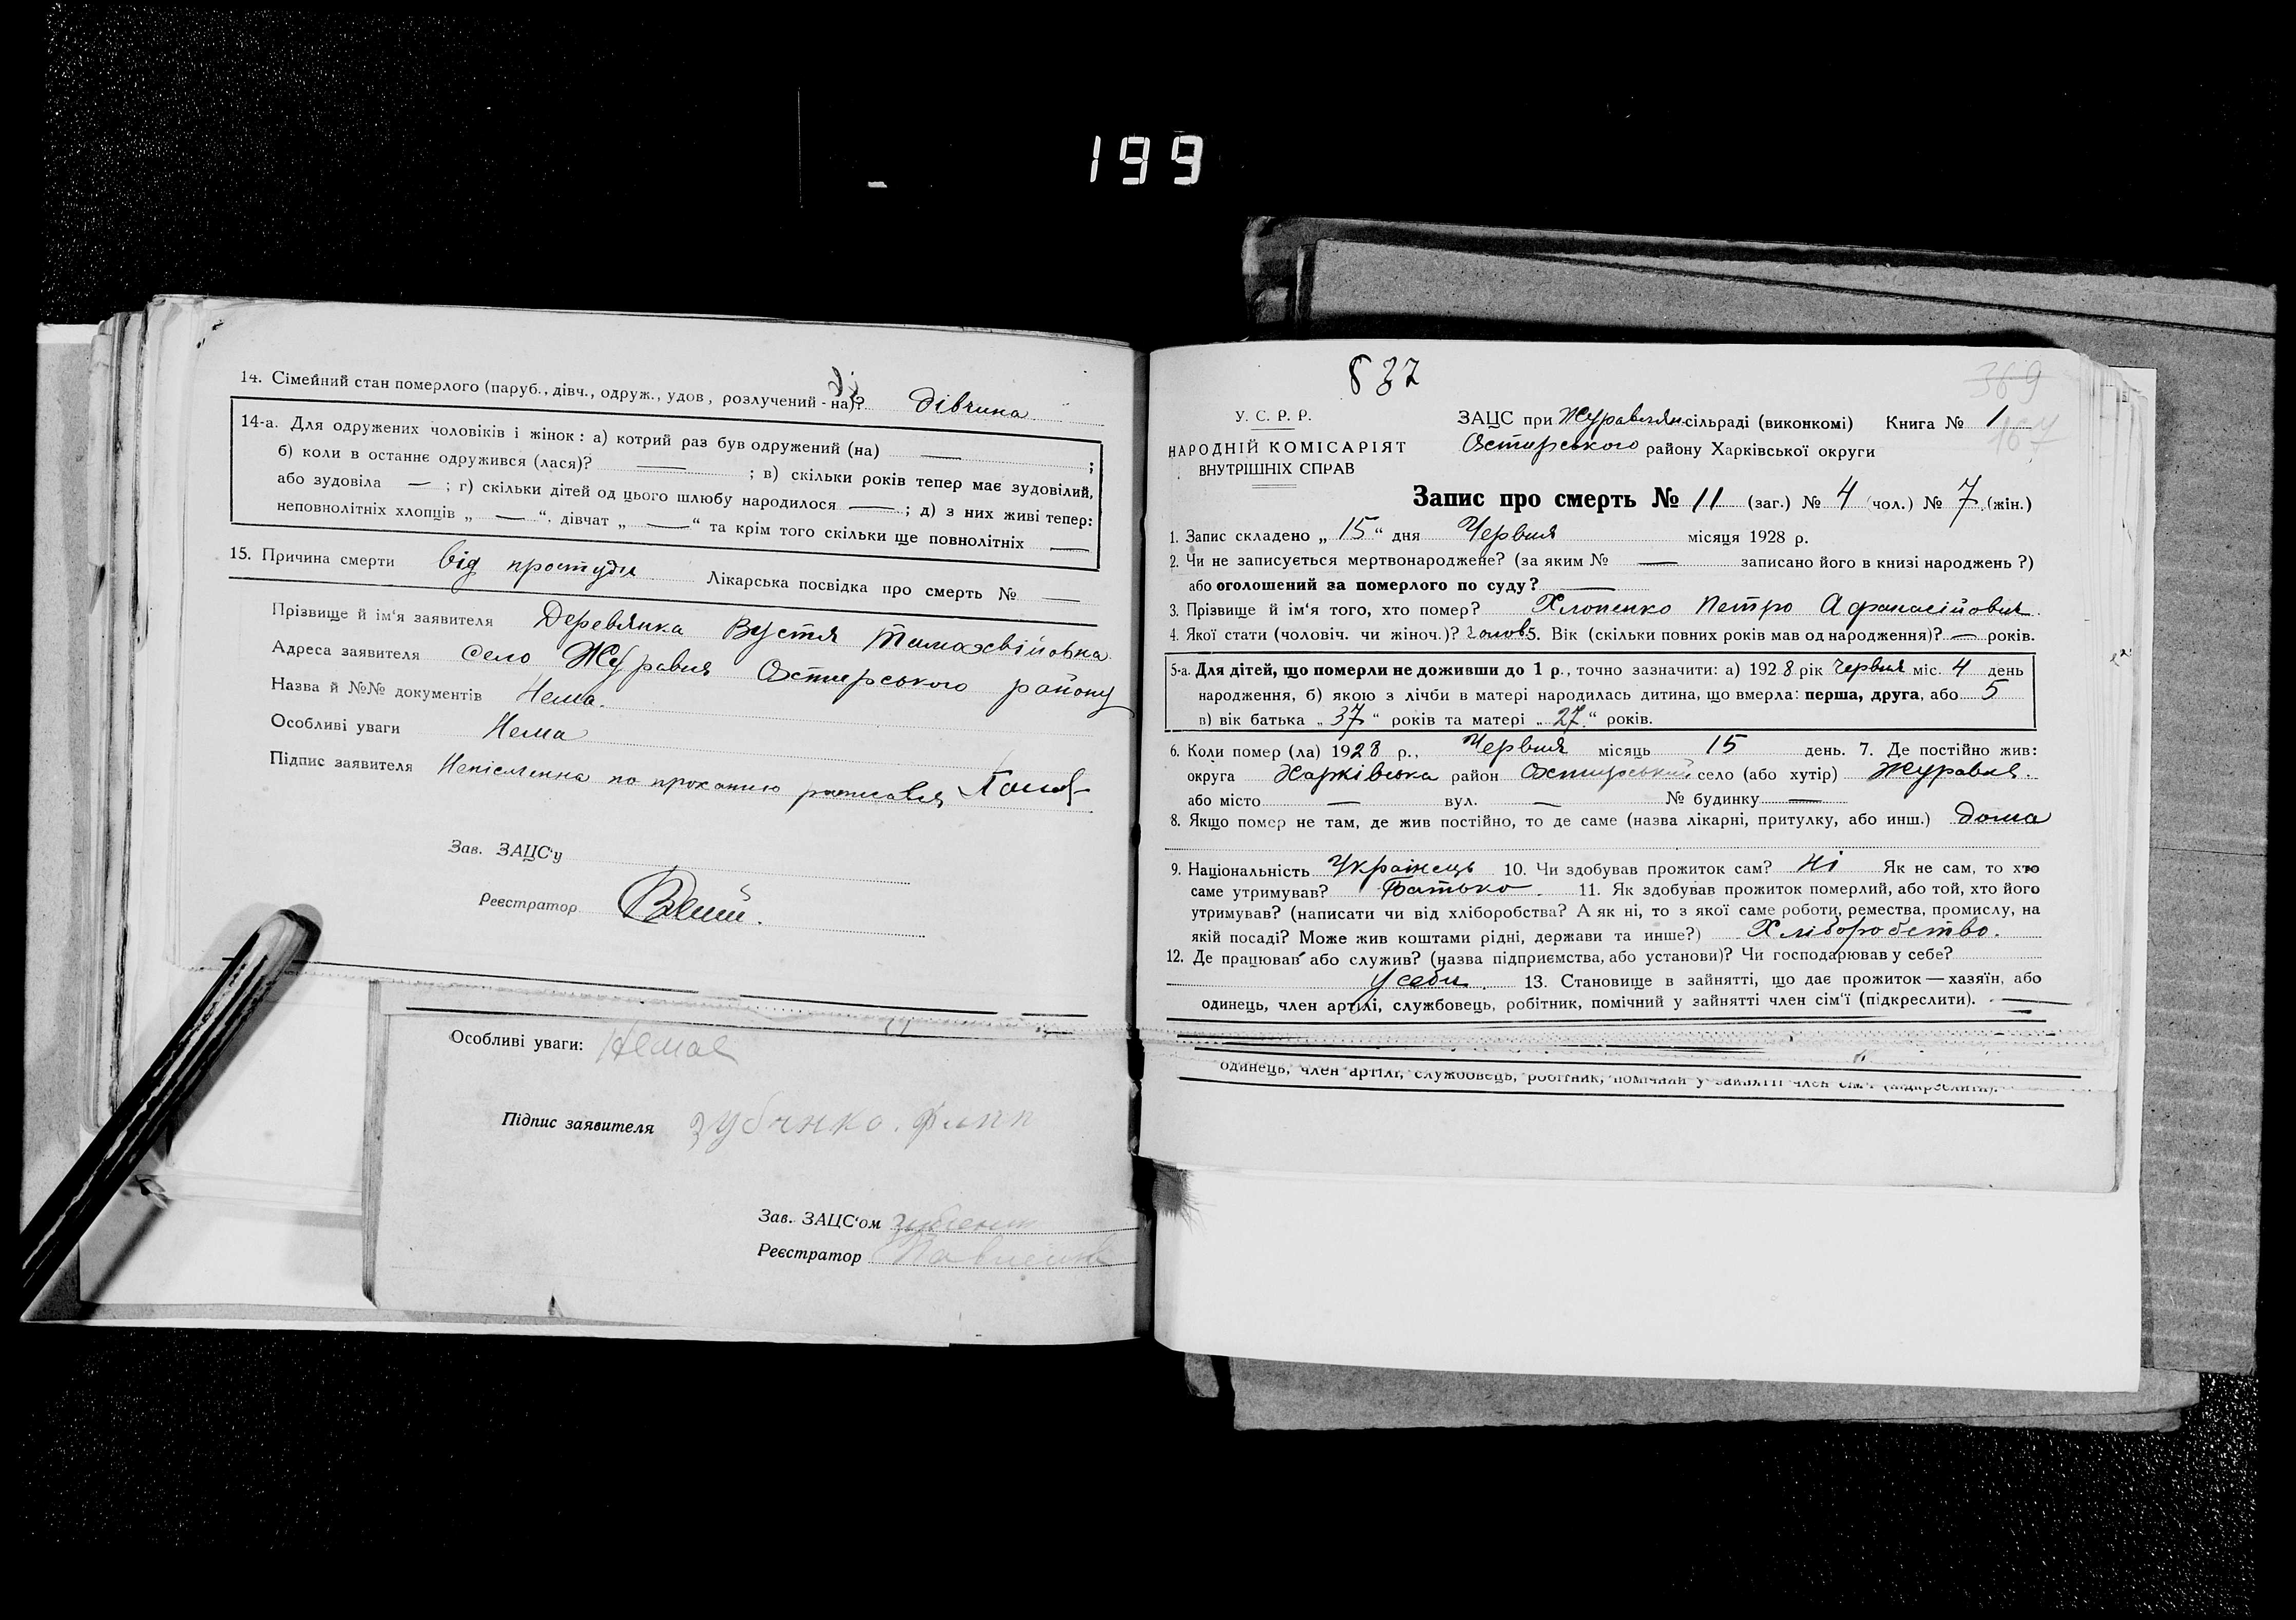 199
14. Сімейний стан померлого (паруб., дівч., одруж., удов., розлучений-на)? дівчина
14-а. Для одружених чоловіків і жінок: а) котрий раз був одружений (на) — ;
б) коли в останнє одружився (лася)? — ; в) скільки років тепер має зудовілий,
або зудовіла — ; г) скільки дітей од цього шлюбу народилося — ; д) з них живі тепер:
неповнолітніх хлопців „ — “, дівчат „ — “ та крім того скільки ще повнолітніх —
15. Причина смерти від простуди Лікарська посвідка про смерть № —
Прізвище й ім'я заявителя Деревянка Вустя
Адреса заявителя село Журавня Охтирського району
Назва й №№ документів Нема.
Особливі уваги Нема
Підпис заявителя Неписменна по проханию росписався
Зав. ЗАЦС'у
Реєстратор
Особливі уваги: Немає
Підпис заявителя
Зав. ЗАЦС'ом
Реєстратор
837
369
167
У. С. Р. Р.
НАРОДНІЙ КОМІСАРІЯТ
ВНУТРІШНІХ СПРАВ
ЗАЦС при Журавнян сільраді (виконкомі) Книга № 1
Охтирського району Харківської округи
Запис про смерть № 11 (заг.) № 4 (чол.) № 7 (жін.)
1. Запис складено „ 15 “ дня Червня місяця 1928 р.
2. Чи не записується мертвонароджене? (за яким № — записано його в книзі народжень ?)
або оголошений за померлого по суду? —
3. Прізвище й ім'я того, хто помер? Хлопенко Петро Афанасійович.
4. Якої стати (чоловіч. чи жіноч.)? чолов 5. Вік (скільки повних років мав од народження)? — років.
5-а. Для дітей, що померли не доживши до 1 р., точно зазначити: а) 1928 рік Червня міс. 4 день
народження, б) якою з лічби в матері народилась дитина, що вмерла: перша, друга, або 5
в) вік батька „ 37 “ років та матері „ 27 “ років.
6. Коли помер (ла) 1928 р., Червня місяць 15 день. 7. Де постійно жив:
округа Харківська район Охтирський село (або хутір) Журавня.
або місто — вул. — № будинку —
8. Якщо помер не там, де жив постійно, то де саме (назва лікарні, притулку, або инш.) дома
9. Національність Українець 10. Чи здобував прожиток сам? Ні Як не сам, то хто
саме утримував? Батько. 11. Як здобував прожиток померлий, або той, хто його
утримував? (написати чи від хліборобства? А як ні, то з якої саме роботи, ремества, промислу, на
якій посаді? Може жив коштами рідні, держави та инше?) Хліборобство.
12. Де працював або служив? (назва підприємства, або установи)? Чи господарював у себе?
у себи. 13. Становище в зайнятті, що дає прожиток — хазяїн, або
одинець, член артілі, службовець, робітник, помічний у зайнятті член сім'ї (підкреслити). —
одинець, член артілі, службовець, робітник, помічний у зайнятті член сім'ї (підкреслити).